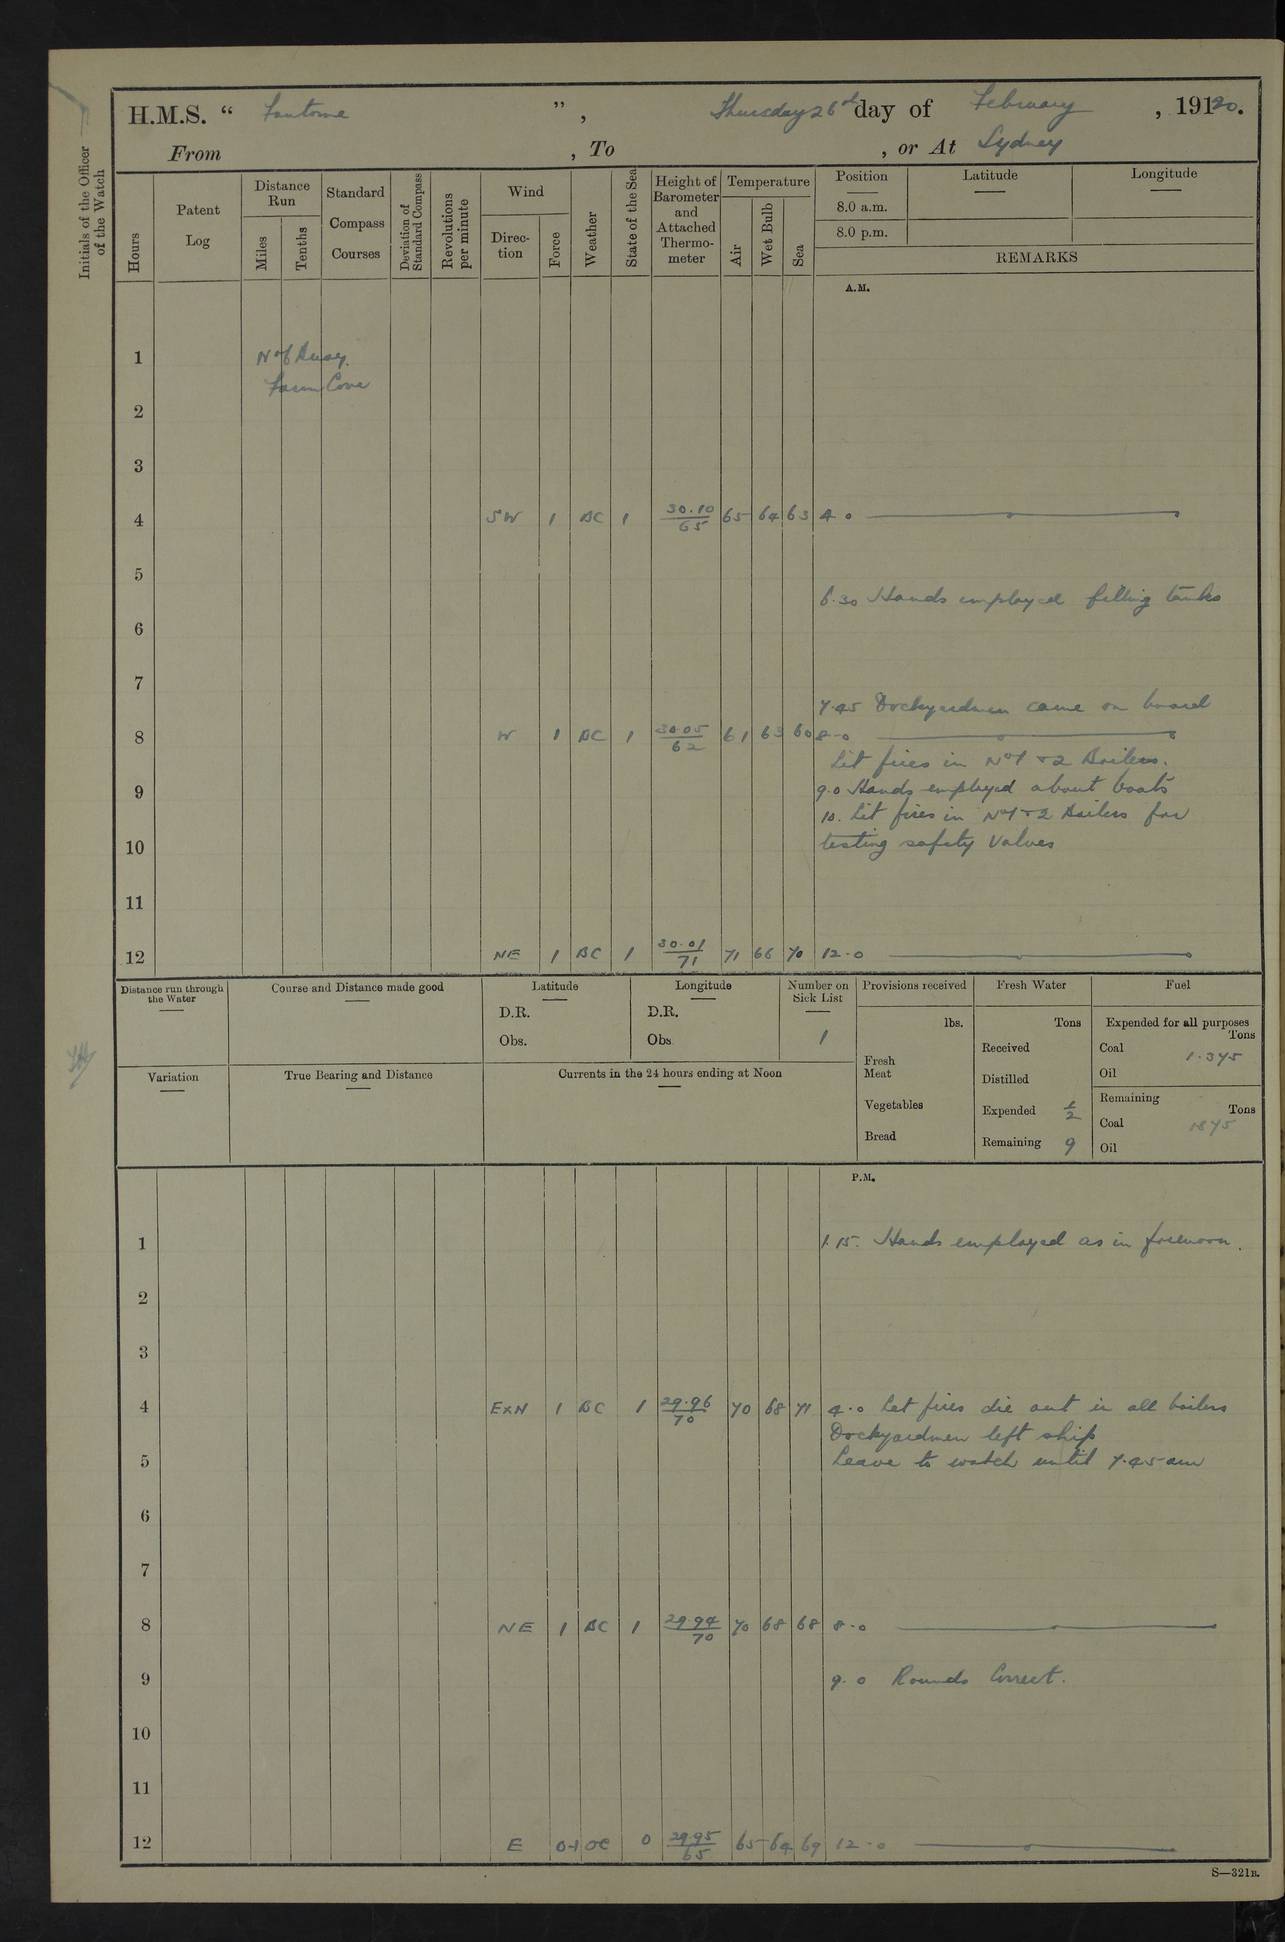 H.M.S. “ Fantome ”, Thursday 26th day of February, 1920.
From , To , or At Sydney
Initials of the Officer of the Watch
Hours
Patent Log
Distance Run
Miles
Tenths
Standard Compass Courses
Deviation of Standard Compass
Revolutions per minute
Wind
Direction
Force
Weather
State of the Sea
Height of Barometer and Attached Thermometer
Temperature
Air
Wet Bulb
Sea
Position
8.0 a.m.
8.0 p.m.
Latitude
Longitude
REMARKS
A.M.
1 No 6 Buoy.
Farm Cove
2
3
4 SW 1 BC 1 30.10/65 65 64 63 4.0
5
6.30 Hands employed filling tanks
6
7
7.45 Dockyardmen came on board
8 W 1 BC 1 30.05/62 61 63 60 8.0
Lit fires in No 1 & 2 Boilers.
9 9.0 Hands employed about boats
10. Lit fires in No 1 & 2 Boilers for
10 testing safety Valves
11
12 NE 1 BC 1 30.01/71 71 66 70 12.0
Distance run through the Water
Course and Distance made good
Latitude
D.R.
Obs.
Longitude
D.R.
Obs.
Number on Sick List
1
Variation
True Bearing and Distance
Currents in the 24 hours ending at Noon
Provisions received
lbs.
Fresh Meat
Vegetables
Bread
Fresh Water
Tons
Received
Distilled
Expended 1/2
Remaining 9
Fuel
Expended for all purposes
Tons
Coal 1.375
Oil
Remaining
Tons
Coal
Oil
P.M.
1 1.15. Hands employed as in forenoon.
2
3
4 ExN 1 BC 1 29.96/70 70 68 71 4.0 Let fires die out in all boilers
Dockyardmen left ship
5 Leave to watch until 7.45 am
6
7
8 NE 1 BC 1 29.94/70 70 68 68 8.0
9 9.0 Rounds Correct.
10
11
12 E 0-1 OC 0 29.95/65 65 64 69 12.0
S—321B.